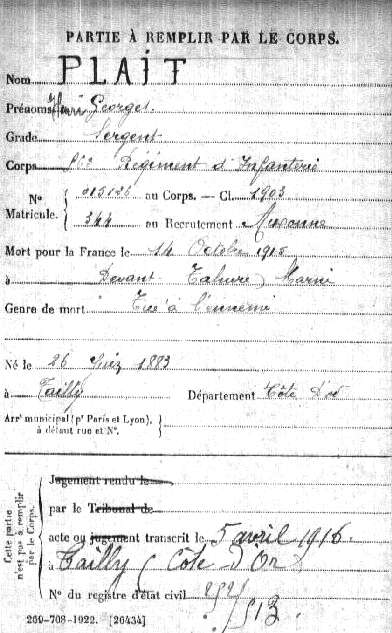 PARTIE À REMPLIR PAR LE CORPS.
Nom PLAIT
Prénoms Henri Georges
Grade Sergent
Corps Régiment d'Infanterie
N° Matricule. 015126 au Corps. — Cl. 1903
344 au Recrutement Auxonne
Mort pour la France le 14 Octobre 1915
à Devant Tahure Marne
Genre de mort Tué à l'ennemi
Né le 26 1883
à Tailly Département Côte d'Or
Arr' municipal (p' Paris et Lyon),
à défaut rue et N°.
Cette partie
n'est pas à remplir
par le Corps.
Jugement rendu le
par le Tribunal de
acte ou jugement transcrit le 5 avril 1916
à Tailly (Côte d'Or)
N° du registre d'état civil
269-708-1922. [26434]